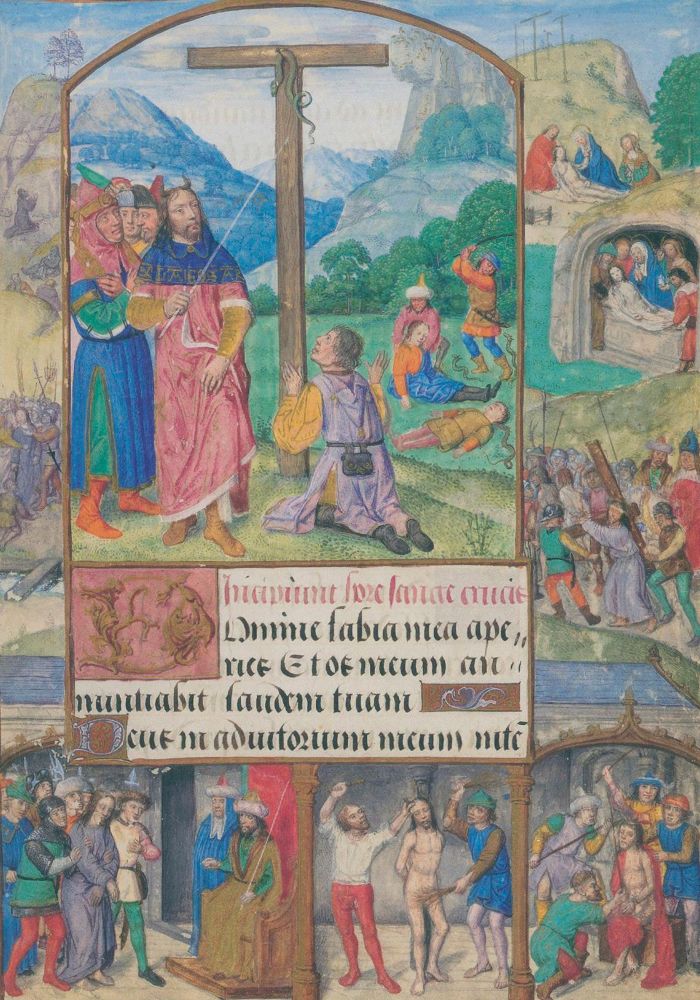 Incipiunt hore sancte crucis
Domine labia mea ape„
ries Et os meum an„
nuntiabit laudem tuam
Deus in adiutorium meum intē